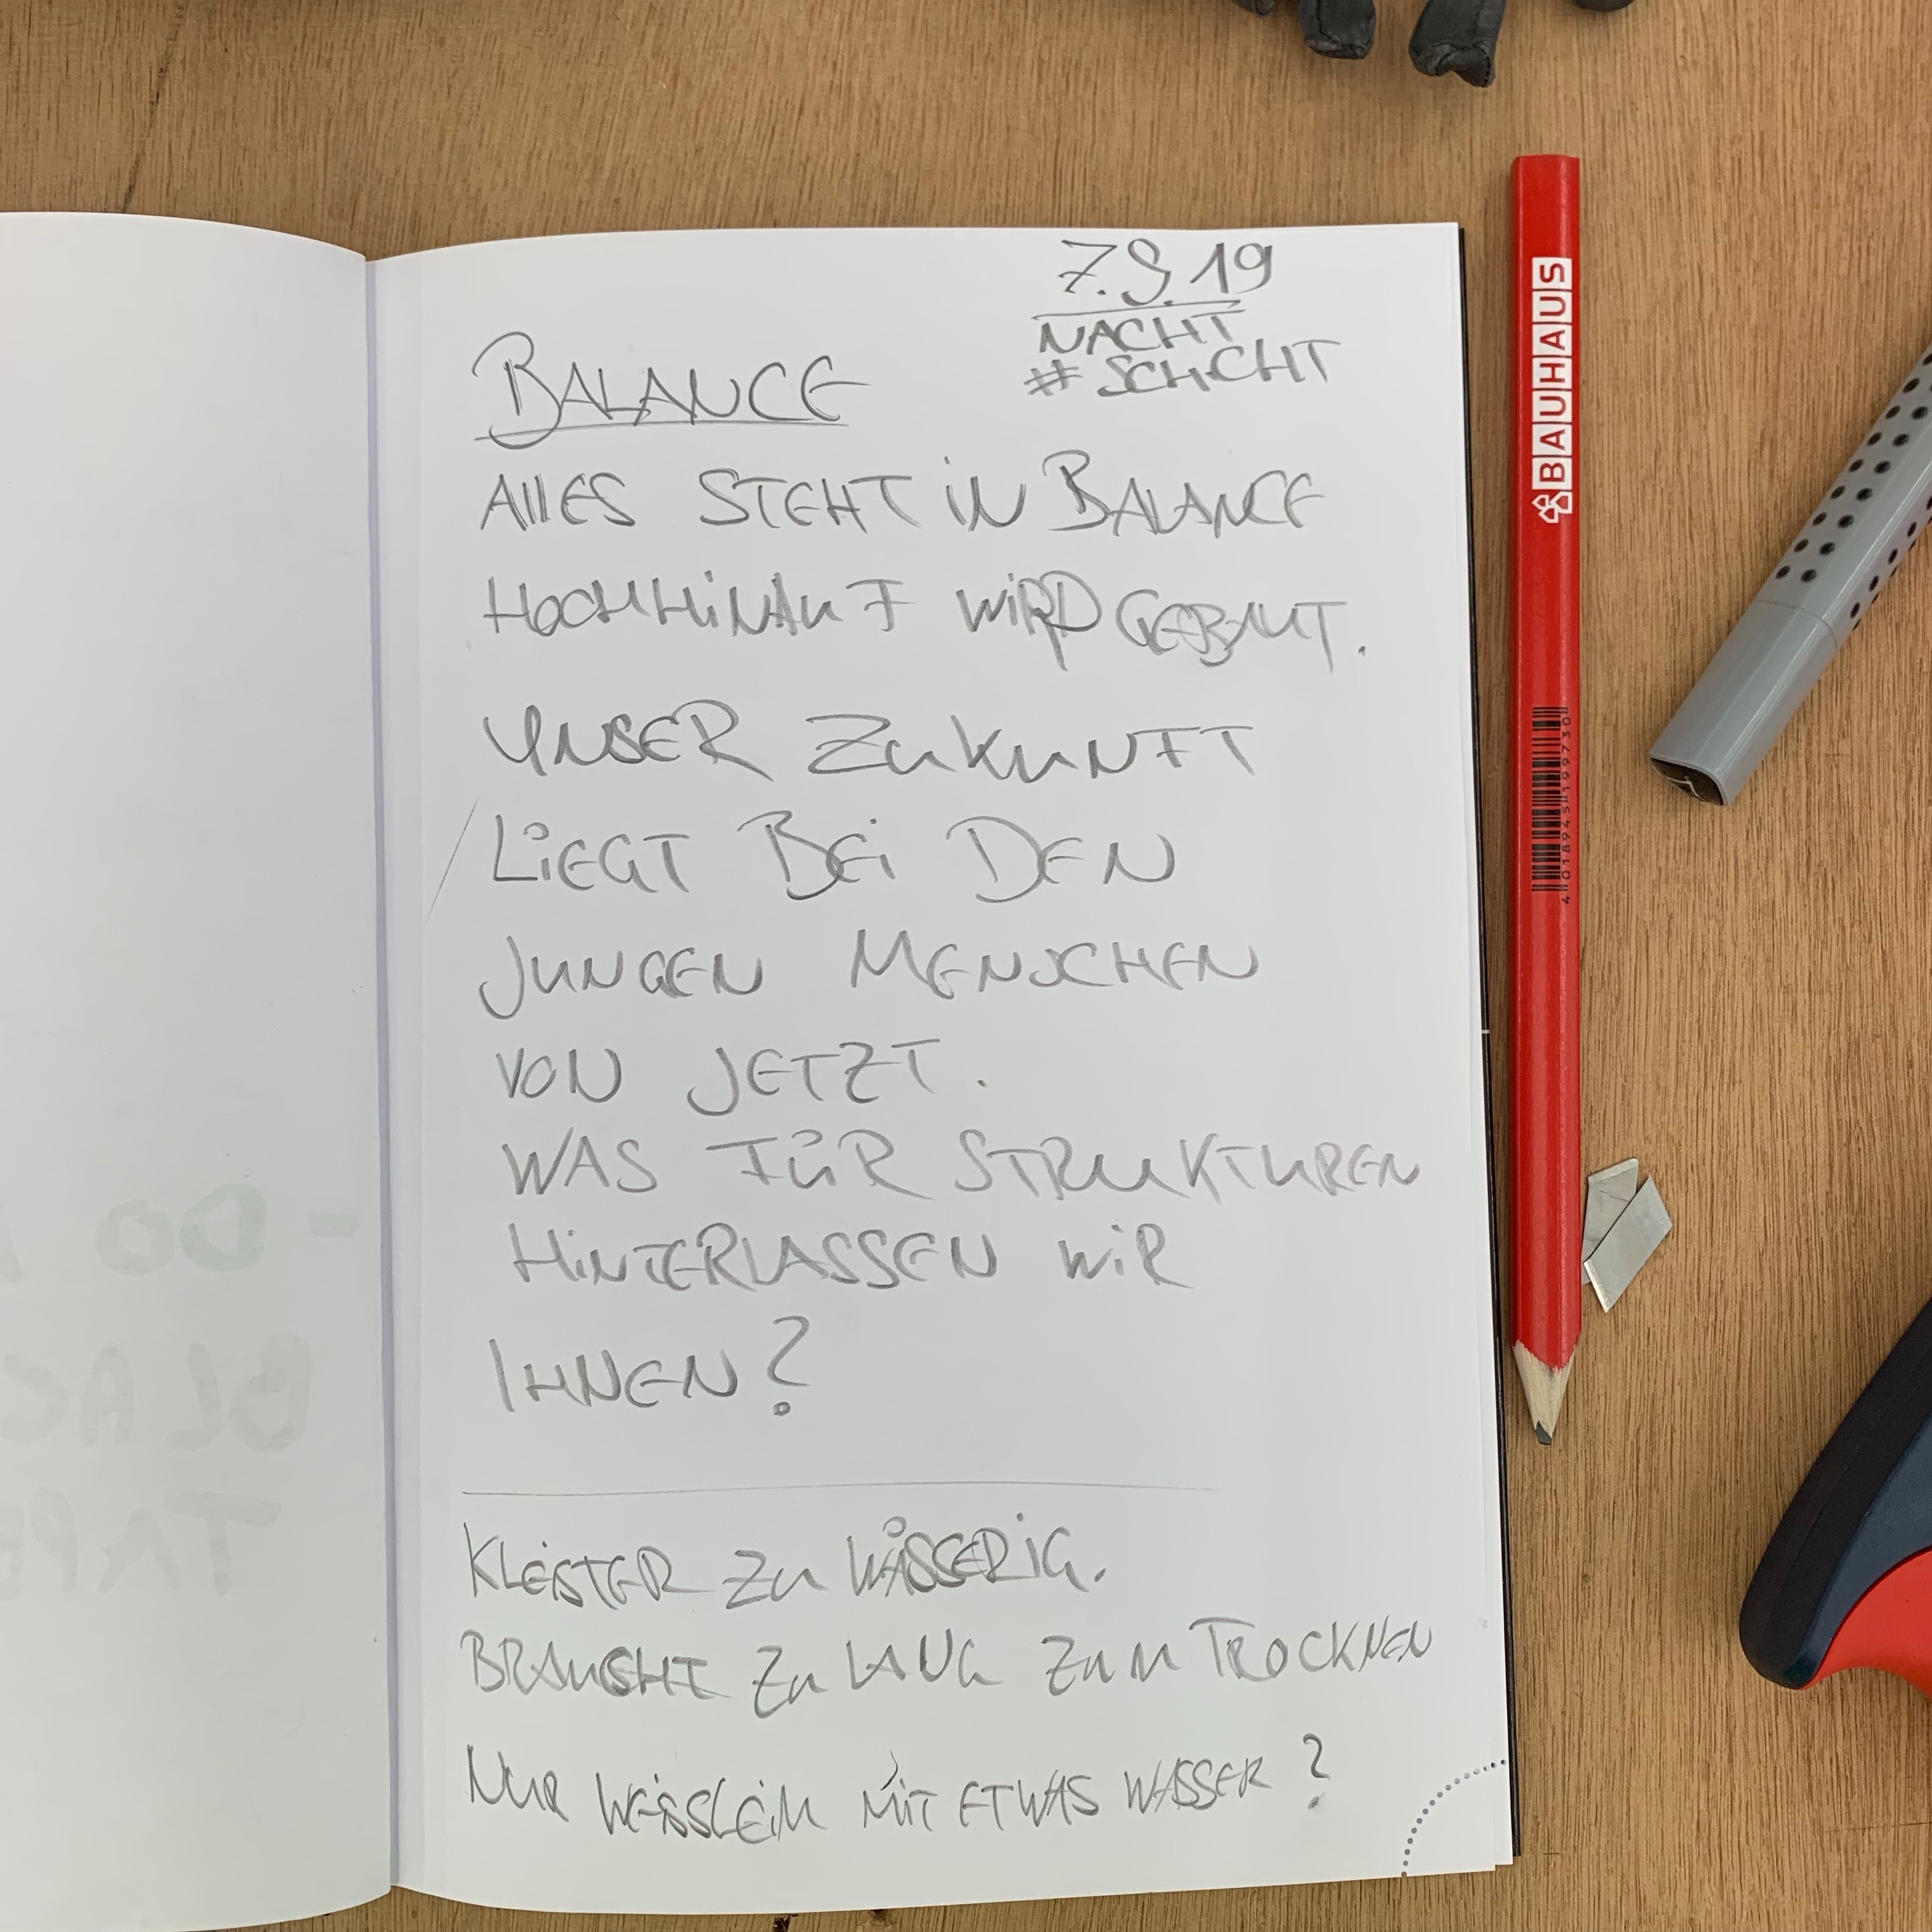 7.9.19
NACHT
#SCHICHT
BALANCE
ALLES STEHT iN BALANCE
HOCHHiNAUF WiRD GEBAUT.
UNSER ZUKUNFT
LiEGT BEi DEN
JUNGEN MENSCHEN
VON JETZT.
WAS FÜR STRUKTUREN
HiNTERLASSEN WiR
IHNEN?
KLEiSTER ZU WÄSSERiG.
BRAUCHT ZU LANG ZUM TROCKNEN
NUR WEiSSLEiM MiT ETWAS WASSER?
BAUHAUS
4 018945 199730
- DO
BLAC
TAPE